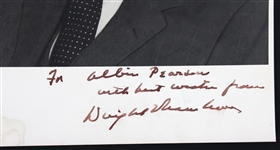 For Albin Pearson
with best wishes from
Dwight Eisenhower